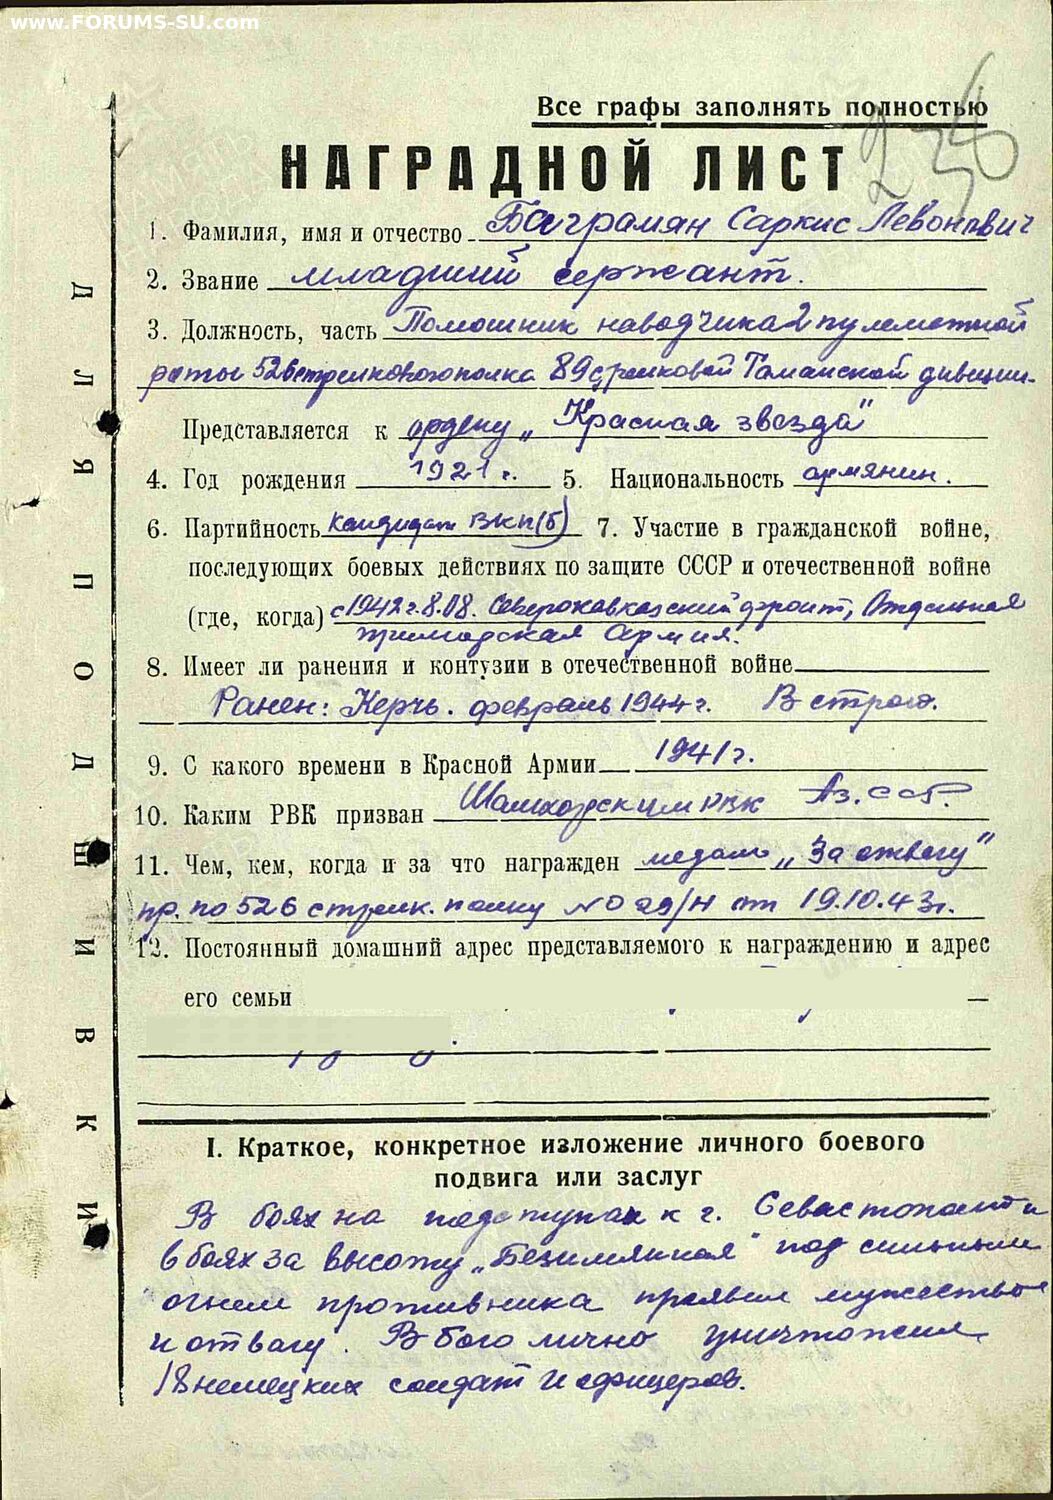 www.FORUMS-SU.com
Все графы заполнять полностью
236
НАГРАДНОЙ ЛИСТ
1. Фамилия, имя и отчество Баграмян Саркис Левонович
2. Звание младший сержант.
3. Должность, часть Помошник наводчика 2 пулеметной
роты 526 стрелкового полка 89 стрелковой Таманской дивизии.
Представляется к ордену „Красная звезда"
4. Год рождения 1921 г. 5. Национальность армянин.
6. Партийность кандидат ВКП(б) 7. Участие в гражданской войне,
последующих боевых действиях по защите СССР и отечественной войне
(где, когда) с 1942 г. 8.08. Северокавказский фронт, Отдельная
приморская Армия.
8. Имеет ли ранения и контузии в отечественной войне
Ранен: Керчь. февраль 1944 г. В строю.
9. С какого времени в Красной Армии 1941 г.
10. Каким РВК призван Шамхорским РВК Аз.ССР.
11. Чем, кем, когда и за что награжден медаль „За отвагу"
пр. по 526 стрелк. полку №029/Н от 19.10.43г.
12. Постоянный домашний адрес представляемого к награждению и адрес
его семьи
I. Краткое, конкретное изложение личного боевого
подвига или заслуг
В боях на подступах к г. Севастополь и
в боях за высоту „Безимянная" под сильным
огнем противника проявил мужество
и отвагу. В бою лично уничтожил
18 немецких солдат и офицеров.
ДЛЯ ПОДШИВКИ